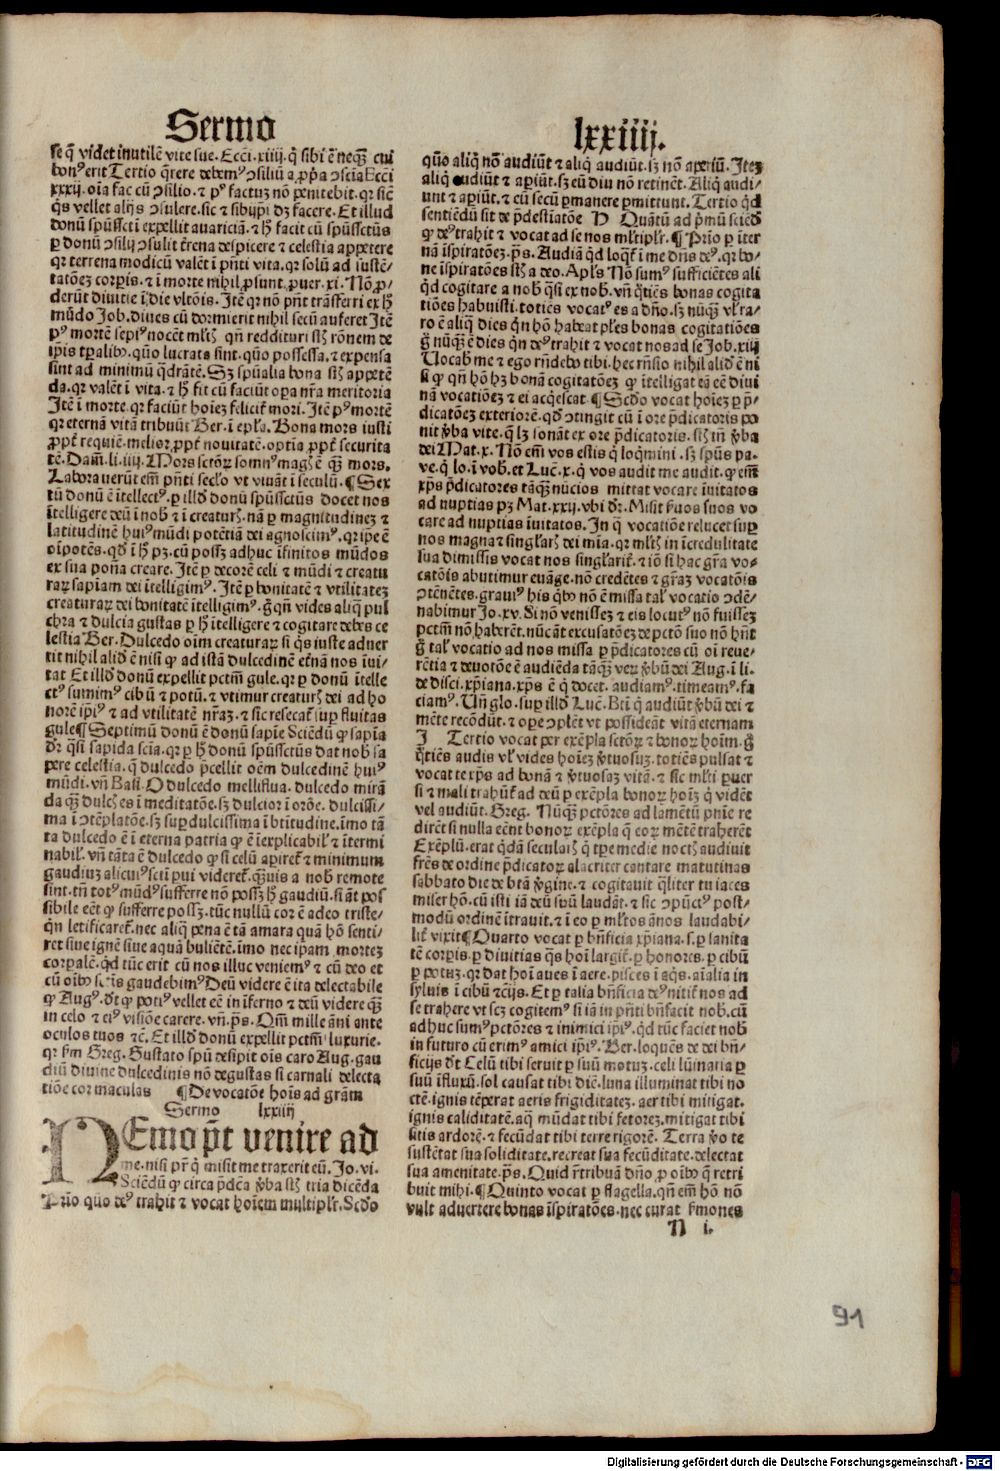 Sermo
lxxiiij.
se q̄ videt inutilē vite sue. Ecci. xiiij. q̇ sibi ē neq̄ꝫ cui
bonꝰ erit Tertio q̄rere debemꝰ ɔsiliū a ꝓp̄a ɔscīa Ecci
xxxij. oīa fac cū ɔsilio. ⁊ pꝰ factuꝫ nō penitebit. qꝛ sic̄
q̇s vellet alijs ɔsulere. sic ⁊ sibijp̄i dꝫ facere. Et illud
donū spūsscti expellit avariciā. ⁊ ħ facit cū spūssctūs
ꝑ donū ɔsilij ɔsulit t̄rena despicere ⁊ celestia appetere
qꝛ terrena modicū valēt ī pn̄ti vita. qꝛ solū ad iustē⸗
tatōeꝫ corꝑis. ⁊ ī morte nihil ꝓsunt. ꝓuer. xi. Nō ꝓ⸗
derūt divitie ī die vltōis. Itē qꝛ nō pn̄t trāsferri ex ħ
mūdo Job. dives cū dormierit nihil secū auferet Itē
pꝰ mortē sepiꝰ nocēt ml̄tꝭ qn̄ reddituri stꝭ rōnem de
ip̄is tꝑalibꝫ. quō lucrata sint. quō possessa. ⁊ expensa
sint ad minimū q̇drātē. Sꝫ spūalia bona stꝭ appetē
da. qꝛ valēt ī vita. ⁊ ħ fit cū faciūt oꝑa nr̄a meritoria
Itē ī morte. qꝛ faciūt hoīeꝫ felicit̄ mori. Itē pꝰ mortē
qꝛ eternā vitā tribuūt Ber. ī epl̄a. Bona mors iusti
ꝓpt̄ requiē. melior ꝓpt̄ novitatē. optīa ꝓpt̄ securita
tē. Dam̄. li. iiij. Mors sctōꝝ somnꝰ magꝭ ē q̄ꝫ mors.
Laboraverūt em̄ pn̄ti seclo vt vivāt ī seculū. ¶ Sex
tū donū ē ītellectꝰ. ꝑ illd̄ donū spūssctūs docet nos
ītelligere deū ī nob̄ ⁊ ī creaturꝭ. nā ꝑ magnitudineꝫ ⁊
latitudinē huiꝰ mūdi potētiā dei agnoscimꝰ. qꝛ ip̄e ē
oīpotēs. qd̄ ī ħ pꝫ. cū possꝫ adhuc īfinitos mūdos
ex sua poña creare. Itē ꝑ decorē celi ⁊ mūdi ⁊ creatu
raꝝ sapiam dei ītelligimꝰ. Itē ꝑ bonitatē ⁊ vtilitateꝫ
creaturaꝝ dei bonitatē ītelligimꝰ. ḡ qn̄ vides aliq̇ pul
chra ⁊ dulcia gustas ꝑ ħ ītelligere ⁊ cogitare debes ce
lestia Ber. Dulcedo oīm creaturaꝝ si q̇s iuste adver
tit nihil alid̄ ē nisi ꝙ ad istā dulcedinē et̄nā nos īvi⸗
tat Et illd̄ donū expellit pctm̄ gule. qꝛ ꝑ donū ītelle
ctꝰ sumimꝰ cibū ⁊ potū. ⁊ vtimur creaturꝭ dei ad ho
norē ip̄iꝰ ⁊ ad vtilitatē nr̄aꝫ. ⁊ sic resecat̄ supfluitas
gule ¶ Septimū donū ē donū sapīe Sciēdū ꝙ sapīa
dr̄ q̄si sapida scīa. qꝛ ꝑ ħ donū spūssctūs dat nob̄ sa
pere celestia. q̄ dulcedo p̄cellit oēm dulcedinē huiꝰ
mūdi. vn̄ Basi. O dulcedo melliflua. dulcedo mirā
da q̄ꝫ dulcis es ī meditatōe. sꝫ dulcior ī orōe. dulcissi⸗
ma ī ɔtēplatōe. sꝫ suꝑ dulcissima ī btītudine. īmo tā
ta dulcedo ē ī eterna patria ꝙ ē īexplicabil̄ ⁊ ītermi
nabil̄. vn̄ tāta ē dulcedo ꝙ si celū apiret̄ ⁊ minimum
gaudiuꝫ alicuiꝰ scti pui videret̄. q̄uis a nob̄ remote
sint. tn̄ totꝰ mūdꝰ sufferre nō possꝫ ħ gaudiū. si āt pos
sibile eēt ꝙ sufferre possꝫ. tūc nullū cor ē adeo triste⸗
qn̄ letificaret̄. nec aliq̄ pena ē tā amara quā hō senti⸗
ret sive ignē sive aquā buliētē. īmo nec ip̄am morteꝫ
corꝑalē. qd̄ tūc erit cū nos illuc veniemꝰ ⁊ cū deo et
cū oībꝫ sctis gaudebimꝰ Deū videre ē ita delectabile
ꝙ Augꝰ. dt̄ ꝙ potiꝰ vellet eē in īferno ⁊ deū videre q̄ꝫ
in celo ⁊ eiꝰ visiōe carere. vn̄. ps̄. Qm̄ mille āni ante
oculos tuos ⁊c̄. Et illd̄ donū expellit pctm̄ luxurie.
qꝛ ẜm Greg. Gustato spū desipit oīs caro Aug. gau
diū divine dulcedinis nō degustas si carnali delecta
tiōe cor maculas ¶ De vocatōe hoīs ad grām
Sermo lxxiiij
NEmo pt̄ venire ad
me. nisi pr̄ q̇ misit me traxerit eū. Jo. vi.
Sciēdū ꝙ circa p̄dc̄a v̄ba stꝭ tria dicēda
Prīo quo deꝰ trahit ⁊ vocat hoīem multiplr̄. Scd̄o
quō aliq̇ nō audiūt ⁊ aliq̇ audiūt. sꝫ nō aperiū. Iteꝫ
aliq̇ audiūt ⁊ apiūt. sꝫ eū diu nō retinēt. Aliq̇ audi⸗
unt ⁊ apiūt. ⁊ eū secū ꝑmanere ꝑmittunt. Tertio qd̄
sentiēdū sit de p̄destiatōe H Quātū ad p̄mū sciēd̄
ꝙ deꝰ trahit ⁊ vocat ad se nos ml̄tiplr̄. ¶ Prīo ꝑ īter
nā īspiratōeꝫ. ps̄. Audiā qd̄ loq̄t̄ ī me dn̄s deꝰ. qꝛ bo⸗
ne īspiratōes stꝭ a deo. Apl̄s Nō sumꝰ sufficiētes ali
qd̄ cogitare a nob̄ q̄si ex nob̄. vn̄ q̇tiēs bonas cogita
tiōes habuisti. totiēs vocatꝰ es a dn̄o. sꝫ nūq̄ꝫ vl̄ ra⸗
ro ē aliq̄ dies q̇n hō habeat pl̄es bonas cogitatiōes
ḡ nūq̄ꝫ ē dies q̇n deꝰ trahit ⁊ vocat nos ad se Job. xiij
Vocab̄ me ⁊ ego rn̄debo tibi. hec rn̄sio nihil alid̄ ē ni
si ꝙ qn̄ hō hꝫ bonā cogitatōeꝫ ꝙ ītelligat eā eē divi
nā vocatiōeꝫ ⁊ ei acq̇escat ¶ Scd̄o vocat hoīeꝫ ꝑ p̄⸗
dicatōeꝫ exteriorē. qd̄ ɔtingit cū ī ore p̄dicatoris po
nit v̄ba vite. q̄ lꝫ sonāt ex ore p̄dicatoris. stꝭ tn̄ v̄ba
dei Mat. x. Nō em̄ vos estis q̇ loq̇mini. sꝫ spūs pa⸗
ve. q̇ lo. ī vob̄. et Luc̄. x. q̇ vos audit me audit. ꝙ em̄
xp̄s p̄dicatores tāq̄ꝫ nūcios mittat vocare īvitatos
ad nuptias pꝫ Mat. xxij. vbi dr̄. Misit ẜuos suos vo
care ad nuptias īvitatos. In q̄ vocatiōe relucet suꝑ
nos magna ⁊ singlarꝭ dei mīa. qꝛ ml̄tꝭ in īcredulitate
sua dimissis vocat nos singlarit̄. ⁊ iō si hac grā vo⸗
catōis abutimur evāge. nō credētes ⁊ grāꝫ vocatōis
ɔtēnētes. graviꝰ his q̇bꝫ nō ē missa tal̄ vocatio ɔdē⸗
nabimur Jo. xv. Si nō venisseꝫ ⁊ eis locutꝰ nō fuisseꝫ
pctm̄ nō haberēt. nūc āt excusatōeꝫ de pctō suo nō hn̄t
ḡ tal̄ vocatio ad nos missa ꝑ p̄dicatores cū oī reve⸗
rētia ⁊ devotōe ē audiēda tāq̄ꝫ veꝝ v̄bū dei Aug. ī li.
de disci. xp̄iana. xp̄s ē q̇ docet. audiamꝰ. timeamꝰ. fa
ciamꝰ. Vn̄ glo. suꝑ illd̄ Luc̄. Bt̄i q̇ audiūt v̄bū dei ⁊
mēte recōdūt. ⁊ oꝑe ɔplēt vt possideāt vitā eternam
J Tertio vocat per exēpla sctōꝝ ⁊ bonoꝝ hoīm. ḡ
q̇tiēs audis vl̄ vides hoīeꝫ v̄tuosuꝫ. totiēs pulsat ⁊
vocat te xp̄s ad bonā ⁊ v̄tuosaꝫ vitā. ⁊ sic ml̄ti ꝑuer
si ⁊ mali trahūt̄ ad deū ꝑ exēpla bonoꝝ hoīꝫ q̇ vidēt
vel audiūt. Greg. Nūq̄ꝫ pctōres ad lamētū pn̄ie re
dirēt si nulla eēnt bonoꝝ exēpla q̄ eoꝝ mētē traherēt
Exēplū. erat qd̄ā secularꝭ q̇ tꝑe medie noctꝭ audivit
fr̄es de ordine p̄dicatoꝝ alacriter cantare matutinas
sabbato die de btā v̄gine. ⁊ cogitavit q̄liter tu iaces
miser hō. cū isti iā deū suū laudāt. ⁊ sic ɔpūctꝰ post⸗
modū ordinē ītravit. ⁊ ī eo ꝑ ml̄tos ānos laudabi⸗
lit̄ vixit ¶ Quarto vocat ꝑ bn̄ficia xp̄iana. s. ꝑ sanita
tē corꝑis. ꝑ divitias q̄s hoī largit̄. ꝑ honores. ꝑ cibū
ꝑ potuꝫ. qꝛ dat hoī aves ī aere. pisces ī aq̇s. aīalia in
sylvis ī cibū ⁊cijs. Et ꝑ talia bn̄ficia deꝰ nitit̄ nos ad
se trahere vt scꝫ cogitemꝰ si iā in pn̄ti bn̄facit nob̄. cū
adhuc sumꝰ pctōres ⁊ inimici ip̄iꝰ. qd̄ tūc faciet nob̄
in futuro cū erimꝰ amici ip̄iꝰ. Ber. loquēs de dei bn̄⸗
ficijs dt̄ Celū tibi servit ꝑ suū motuꝫ. celi lūinaria ꝑ
suū īfluxū. sol causat tibi diē. luna illuminat tibi no
ctē. ignis tēperat aeris frigiditateꝫ. aer tibi mitigat.
ignis caliditatē. aq̄ mūdat tibi fetoreꝫ. mitigat tibi
sitis ardorē. ⁊ fecūdat tibi terre rigorē. Terra v̄o te
sustētat sua soliditate. recreat sua fecūditate. delectat
sua amenitate. ps̄. Quid r̄tribuā dn̄o ꝓ oībꝫ q̄ retri
buit mihi. ¶ Quinto vocat ꝑ flagella. qn̄ em̄ hō nō
vult advertere bonas īspiratōes. nec curat ẜmones
N i.
91
Digitalisierung gefördert durch die Deutsche Forschungsgemeinschaft - DFG